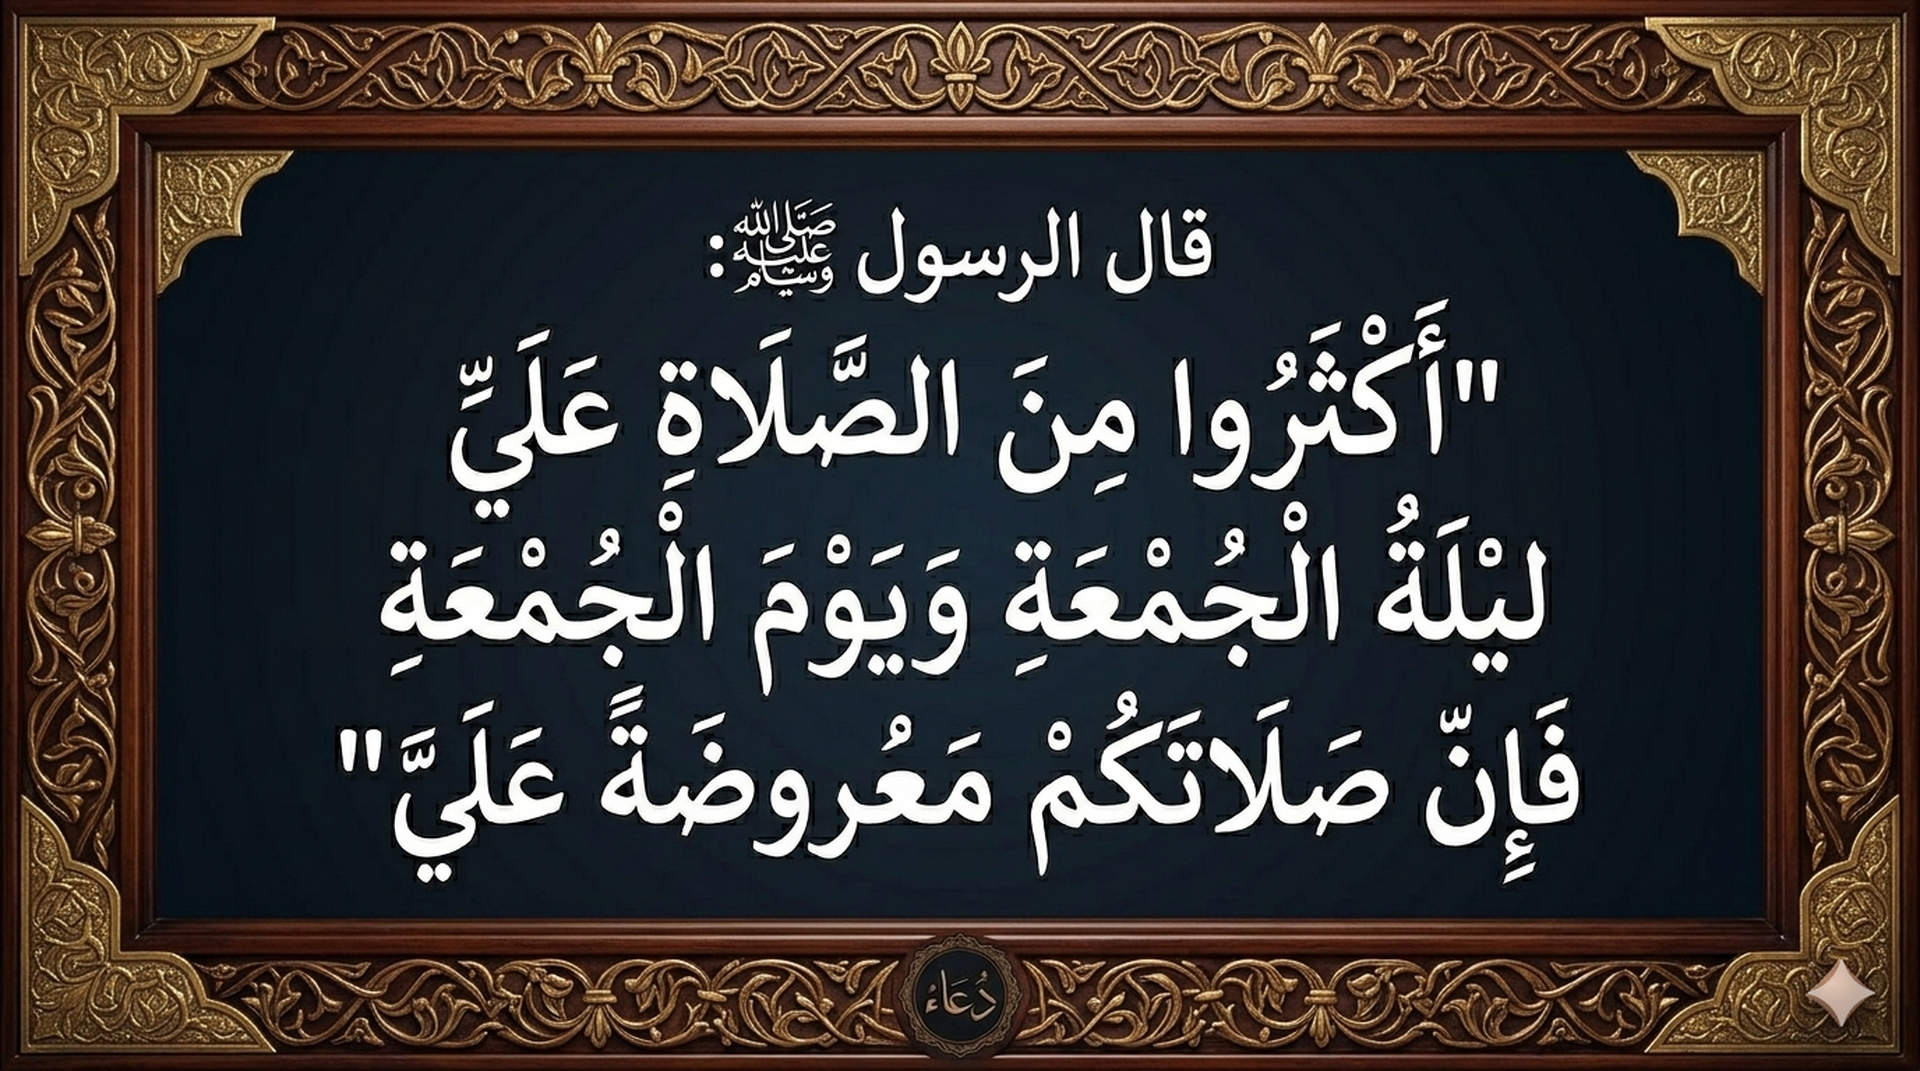 قال الرسول ﷺ:
"أَكْثَرُوا مِنَ الصَّلَاةِ عَلَيِّ
ليْلَةُ الْجُمْعَةِ وَيَوْمَ الْجُمْعَةِ
فَإِنّ صَلَاتَكُمْ مَعُروضَةً عَلَيَّ"
دُعَاءْ